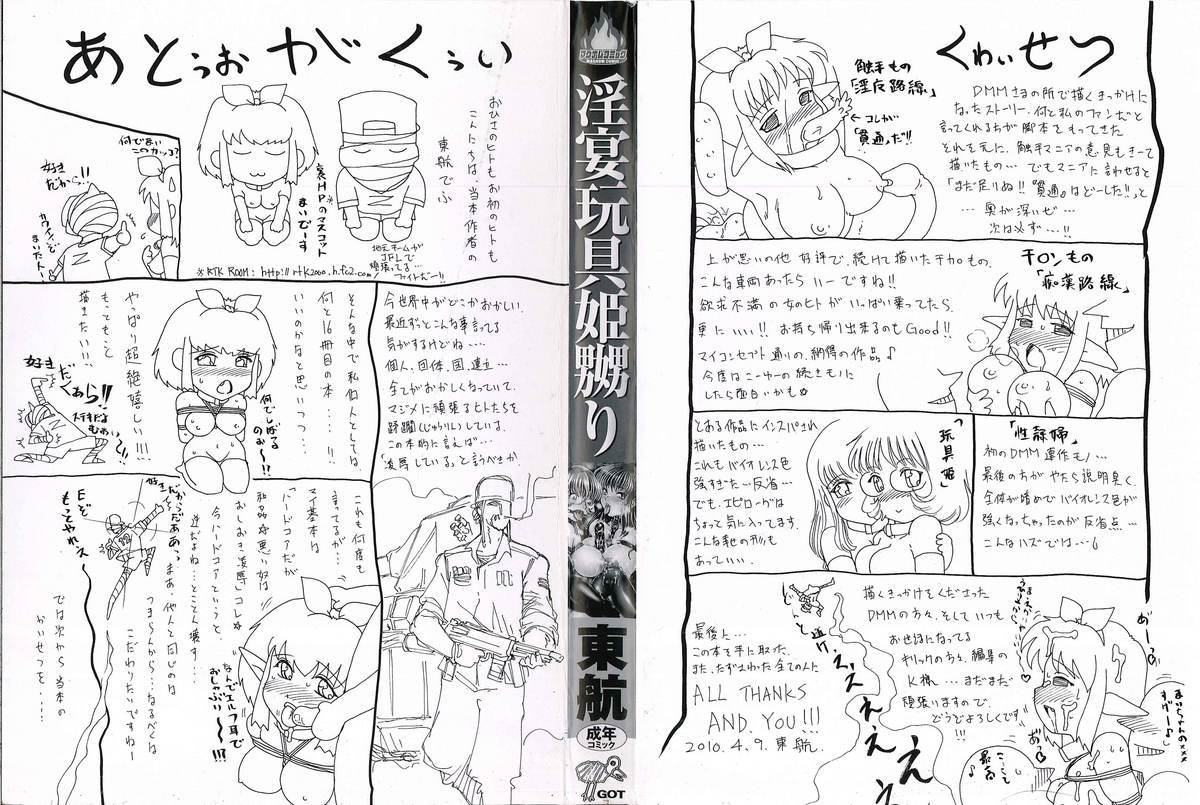 あとぅおがくぅい
おひさのヒトもお初のヒトも
こんにちは、当本作者の
東航でふ
裏HPのマスコット
まいでーす
地元チームが
JFLで
頑張ってる…
ファイトだー!!
※RTK ROOM : http://rtk2000.h.fc2.com/
何で赤い
このカッコ?
好き
だから!!
今世界中がどこかおかしい。
最近ずっとこんな事言ってる
気がするけどね…
個人、団体、国、連立…
全てがおかしくなっていて、
マジメに頑張るヒトたちを
蹂躙(じゅうりん)している。
この本的に言えば…
「凌辱している」と言うべきか
そんな中で私個人としては
何と16冊目の本…!!
いいのかなと思いつつ…
やっぱり超絶嬉しい!!!
もっともっと
描きたい!!
何でしばる
のぉ〜!?
好き
だ
ぁら!!
これも何度も
言ってるが…
マイ基本は
「ハードコア」だが
私の品は悪い奴は
おしおき凌辱」コレ☆
今ハードコアというと、
逆だよね…とことん壊す…
まあ、他人と同じのは
つまらんから…なるべく
こだわりたいですねー
では次から当本の
かいせつを…
なんでエルフ耳で
おしゃぶり〜!?!
好きん
だからだああっ
Eぞ
もってやれぇ
マグナムコミック
MAGNUM COMIC
淫宴玩具姫嬲り
東航
成年
コミック
GOT
くわぃせつ
触手もの
「淫辱路線」
←コレが
「貫通」だ!!
DMMさまの所で描くきっかけに
なったストーリー。何と私のファンだと
言ってくれる方が脚本をもってきた
それを元に、触手マニアの意見もきーて
描いたもの…でもマニアに言わせると
「まだ足りぬ!! 貫通はどーした!!」って
…奥が深いぜ…
次は必ず…!!
チカンもの
「痴漢路線」
上が思いの他好評で、続けて描いたチカンもの。
こんな車両あったらいーですね!!
欲求不満の女のヒトがいっぱい乗ってたら、
更にいい!! お持ち帰り出来るのもGood!!
マイコンセプト通りの、納得の作品♪
今度はこーゆーの続きものに
したら面白いかも☆
「性謀婦」
初のDMM連作もの…
最後の方がやたら説明臭く、
全体が暗めでバイオレンス色が
強くなっちゃったのが反省点…
こんなハズでは…
「玩具姫」
とある作品にインスパされ
描いたもの…
これもバイオレンス色
強すぎた…反省…
でも、エピローグは
ちょっと気に入ってます。
こんな魅の形も
あっていい。
描くきっかけをくださった
DMMの方々、そしていつも
お世話になってる
キリックの方々、編集の
K様…まだまだ
頑張りますので、
どうぞよろしくです!!
最後に…
この本を手に取った、
また、たずさわった全ての人に
ALL THANKS
AND YOU!!!
2010.4.9. 東航.
まいちゃんの×××
すげーよぉ♪
こーこく
最高♪
あ〜っ